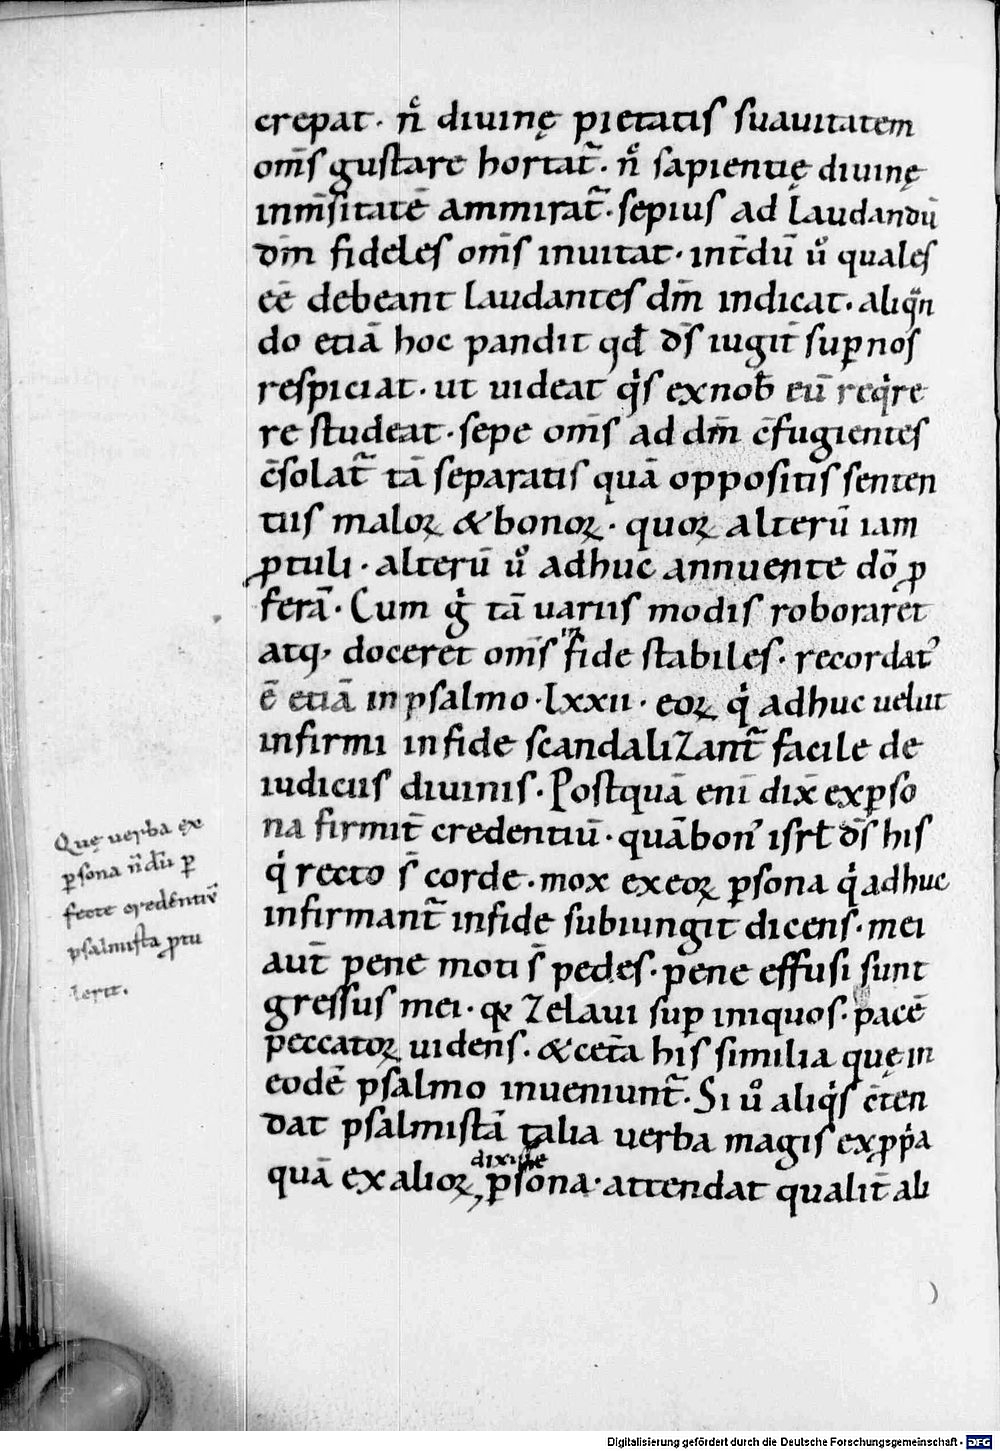 crepat· nͨ diuinę pietatis suauitatem
om̄s gustare hortat᷑· nͨ sapientię diuinę
inm̄sitatē ammirat᷑· sepius ad laudandū
dm̄ fideles om̄s inuitat· int̄dū uͦ quales
eē debeant laudantes dm̄ indicat· aliqͣn
do etiā hoc pandit qd̄ ds̄ iugit̄ sup̱ nos
respiciat· ut uideat qͥs ex nob̄ eū reqͥre
re studeat· sepe om̄s ad dm̄ c̄fugientes
c̄solat᷑ tā separatis quā oppositis senten
tiis maloꝝ & bonoꝝ· quoꝝ alterū iam
ꝓtuli· alterū uͦ adhuc annuente dō ꝓ
ferā· Cum gͥ tā uariis modis roboraret
atq, doceret om̄s in fide stabiles· recordat᷒
ē etiā in psalmo·lxxii· eoꝝ qͥ adhuc uelut
infirmi in fide scandalizant᷑ facile de
iudiciis diuinis· Postquā eni dix̄ ex ꝑso
na firmit̄ credentiū· quā bon᷒ isrł ds̄ his
qͥ recto s̄ corde· mox ex eoꝝ ꝑsona qͥ adhuc
infirmant᷑ in fide subiungit dicens· mei
aut̄ pene moti s̄ pedes· pene effusi sunt
gressus mei· qꝛ zelaui suꝑ iniquos· pacē
peccatoꝝ uidens· & cet̄a his similia quę in
eodē psalmo inueniunt᷑· Si uͦ aliqͥs c̄ten
dat psalmistā talia uerba magis ex ꝓpͥa
quā ex alioꝝ ꝑsona dixisse· attendat qualit̄ ali
Quę uerba ex
ꝑsona n̄dū ꝑ
fecte credentiū
psalmista ꝓtu
lerit.
Digitalisierung gefördert durch die Deutsche Forschungsgemeinschaft - DFG